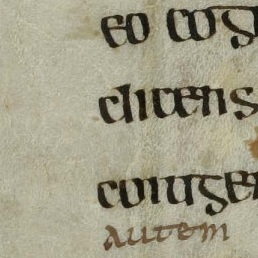 eo cog
dicens
coniuge
autem